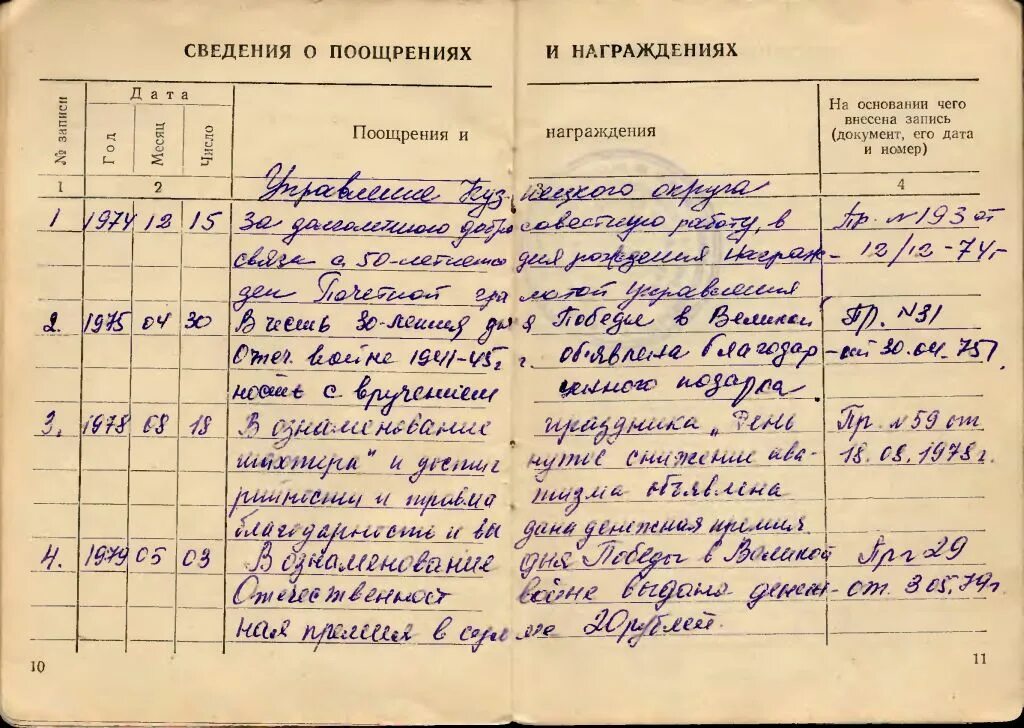 СВЕДЕНИЯ О ПООЩРЕНИЯХ И НАГРАЖДЕНИЯХ
№ записи Дата Поощрения и награждения На основании чего внесена запись (документ, его дата и номер)
Год Месяц Число
1 2 3 4
Управление Кузнецкого округа
1 1974 12 15 За долголетнюю добросовестную работу, в Пр. №193 от
связи с 50-летием дня рождения награж- 12/12-74г
ден Почетной грамотой управления
2. 1975 04 30 В честь 30-летия дня Победы в Великой Пр. №31
Отеч. войне 1941-45г г. объявлена благодар- от 30.04.75г.
ность с вручением ценного подарка
3. 1978 08 18 В ознаменование праздника „День Пр. №59 от
шахтера" и достигнутое снижение ава- 18.08.1978г.
рийности и травматизма объявлена
благодарность и выдана денежная премия
4. 1979 05 03 В ознаменование дня Победы в Великой Пр 29
Отечественной войне выдана денеж- от. 3 05.79г.
ная премия в сумме 20 рублей.
10 11